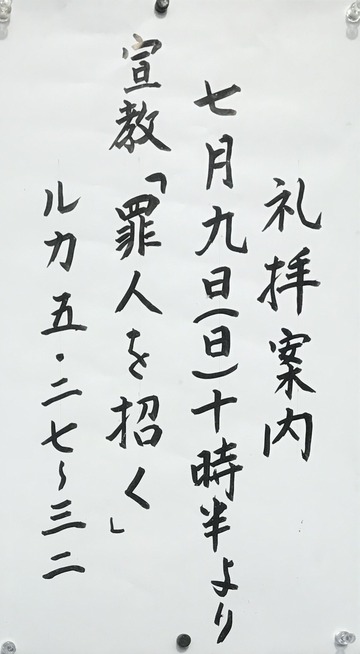 礼拝案内
七月九日(日)十時半より
宣教「罪人を招く」
ルカ五・二七~三二